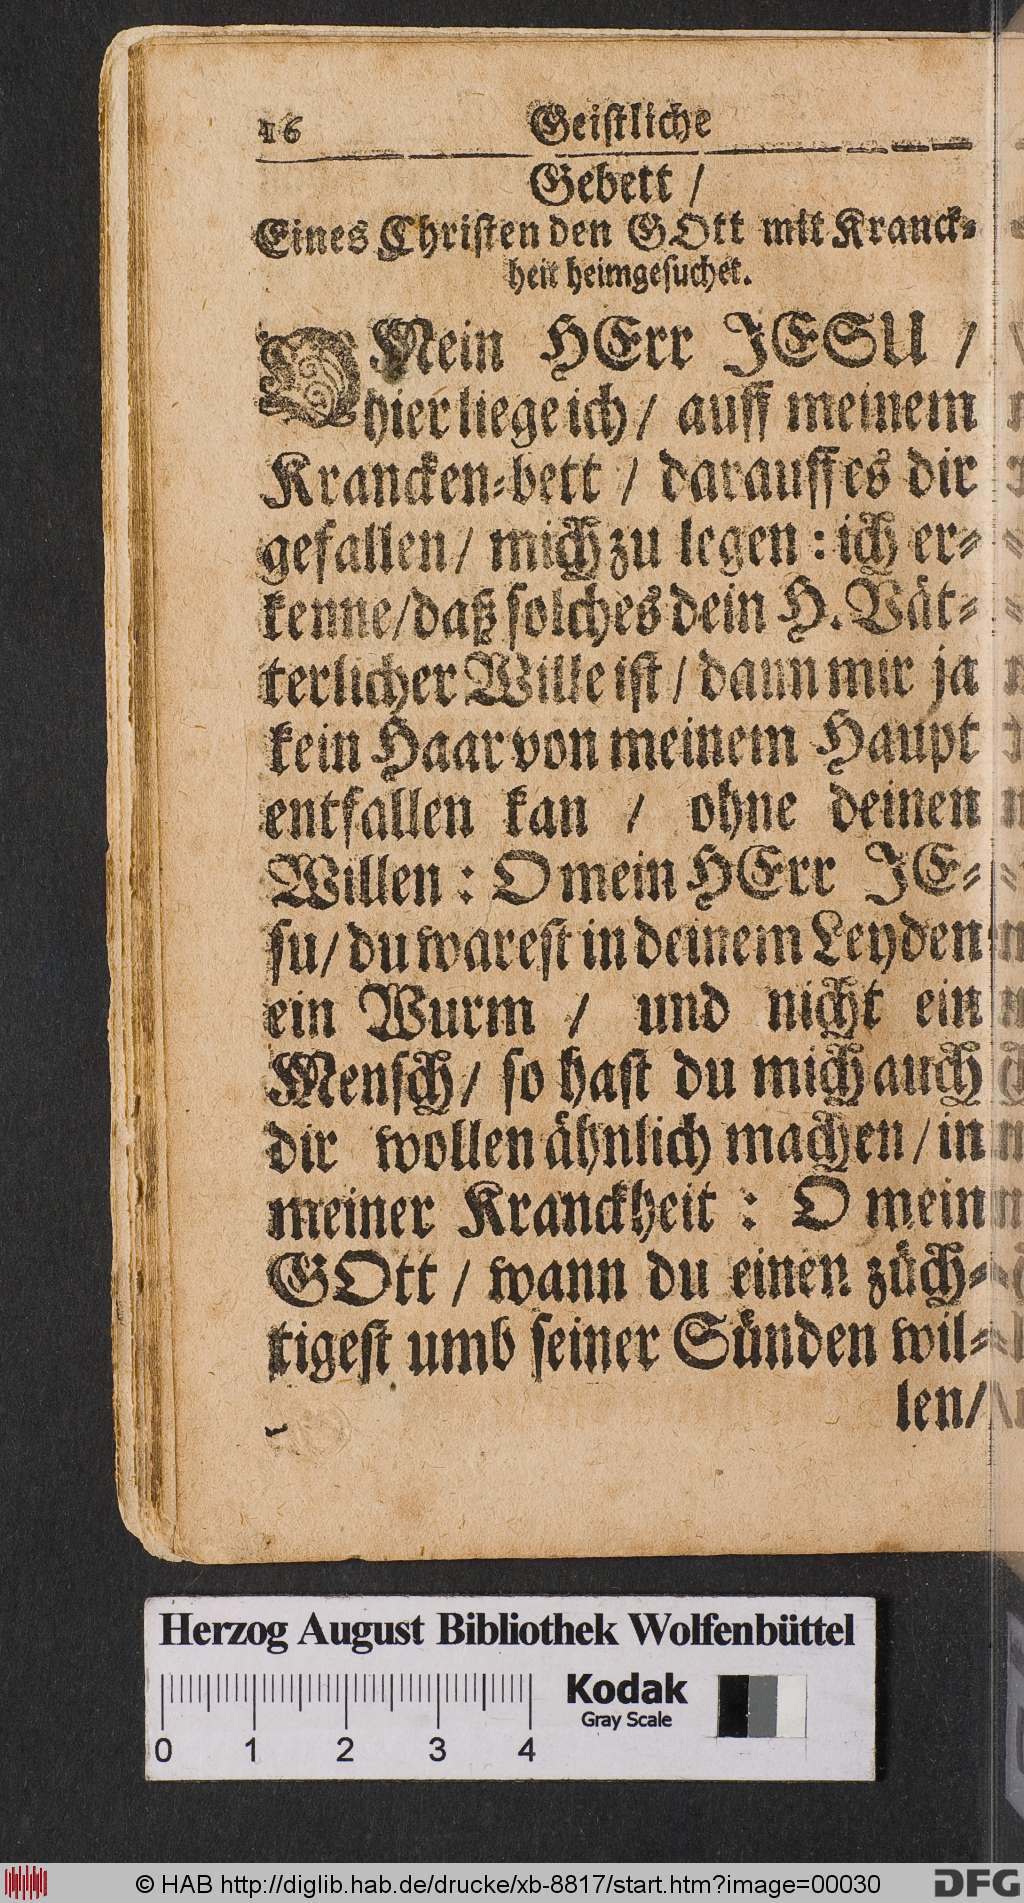 16 Geistliche
Gebett /
Eines Christen den GOtt mit Kranck-
heit heimgesuchet.
O Mein HErr JESU /
hier liege ich / auff meinem
Krancken-bett / darauff es dir
gefallen / mich zu legen : ich er-
kenne / daß solches dein H. Vät-
terlicher Wille ist / dann mir ja
kein Haar von meinem Haupt
entfallen kan / ohne deinen
Willen : O mein HErr JE-
su / du warest in deinem Leyden
ein Wurm / und nicht ein
Mensch / so hast du mich auch
dir wollen ähnlich machen / in
meiner Kranckheit : O mein
GOtt / wann du einen züch-
tigest umb seiner Sünden wil-
len /
Herzog August Bibliothek Wolfenbüttel
Kodak
Gray Scale
0 1 2 3 4
© HAB http://diglib.hab.de/drucke/xb-8817/start.htm?image=00030
DFG